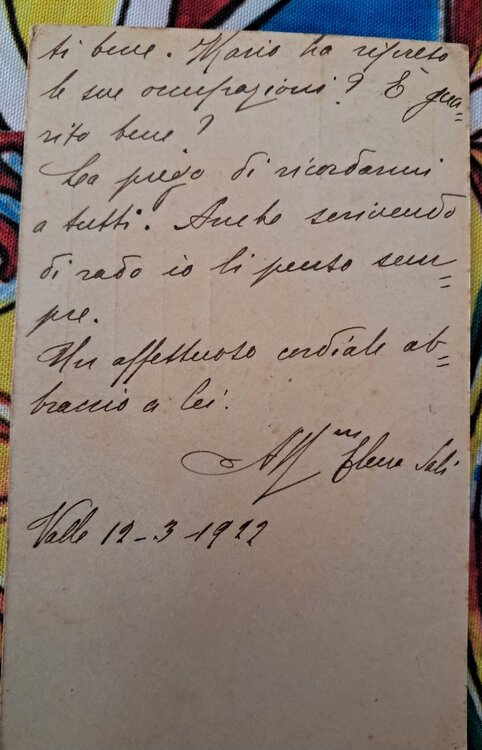 ti bene. Mario ha ripreso
le sue occupazioni? È gua=
rito bene?
La prego di ricordarmi
a tutti. Anche scrivendo
di rado io li penso sem=
pre.
Un affettuoso cordiale ab=
braccio a lei.
Aff.ma Elena Sali
Valle 12-3-1922